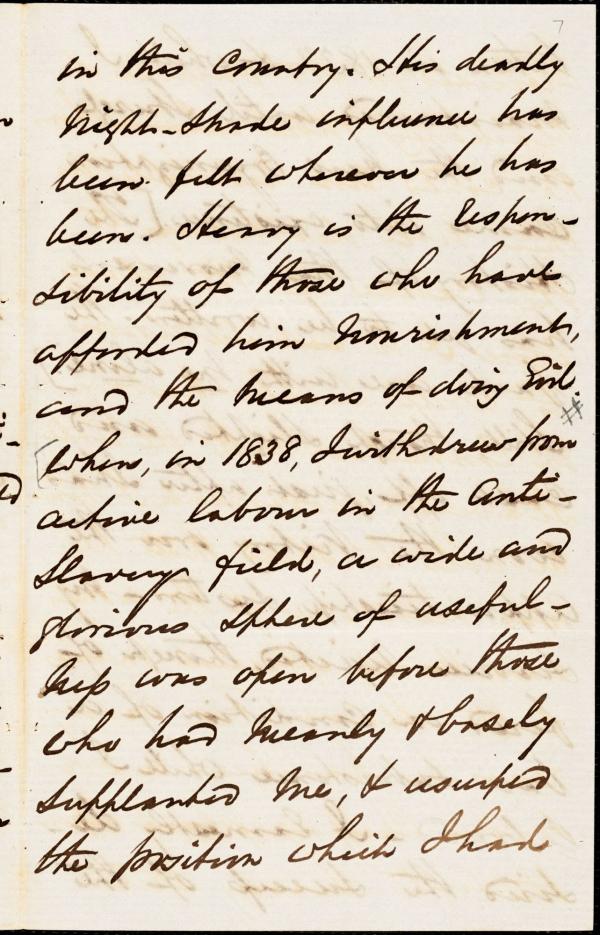 7
in this Country. His deadly
Night-Shade influence has
been felt wherever he has
been. Heavy is the respon-
sibility of those who have
afforded him nourishment,
and the means of doing Evil.
#
[When, in 1838, I withdrew from
active labour in the Anti-
Slavery field, a wide and
glorious sphere of useful-
ness was open before those
who had meanly & basely
supplanted me, & usurped
the position which I had